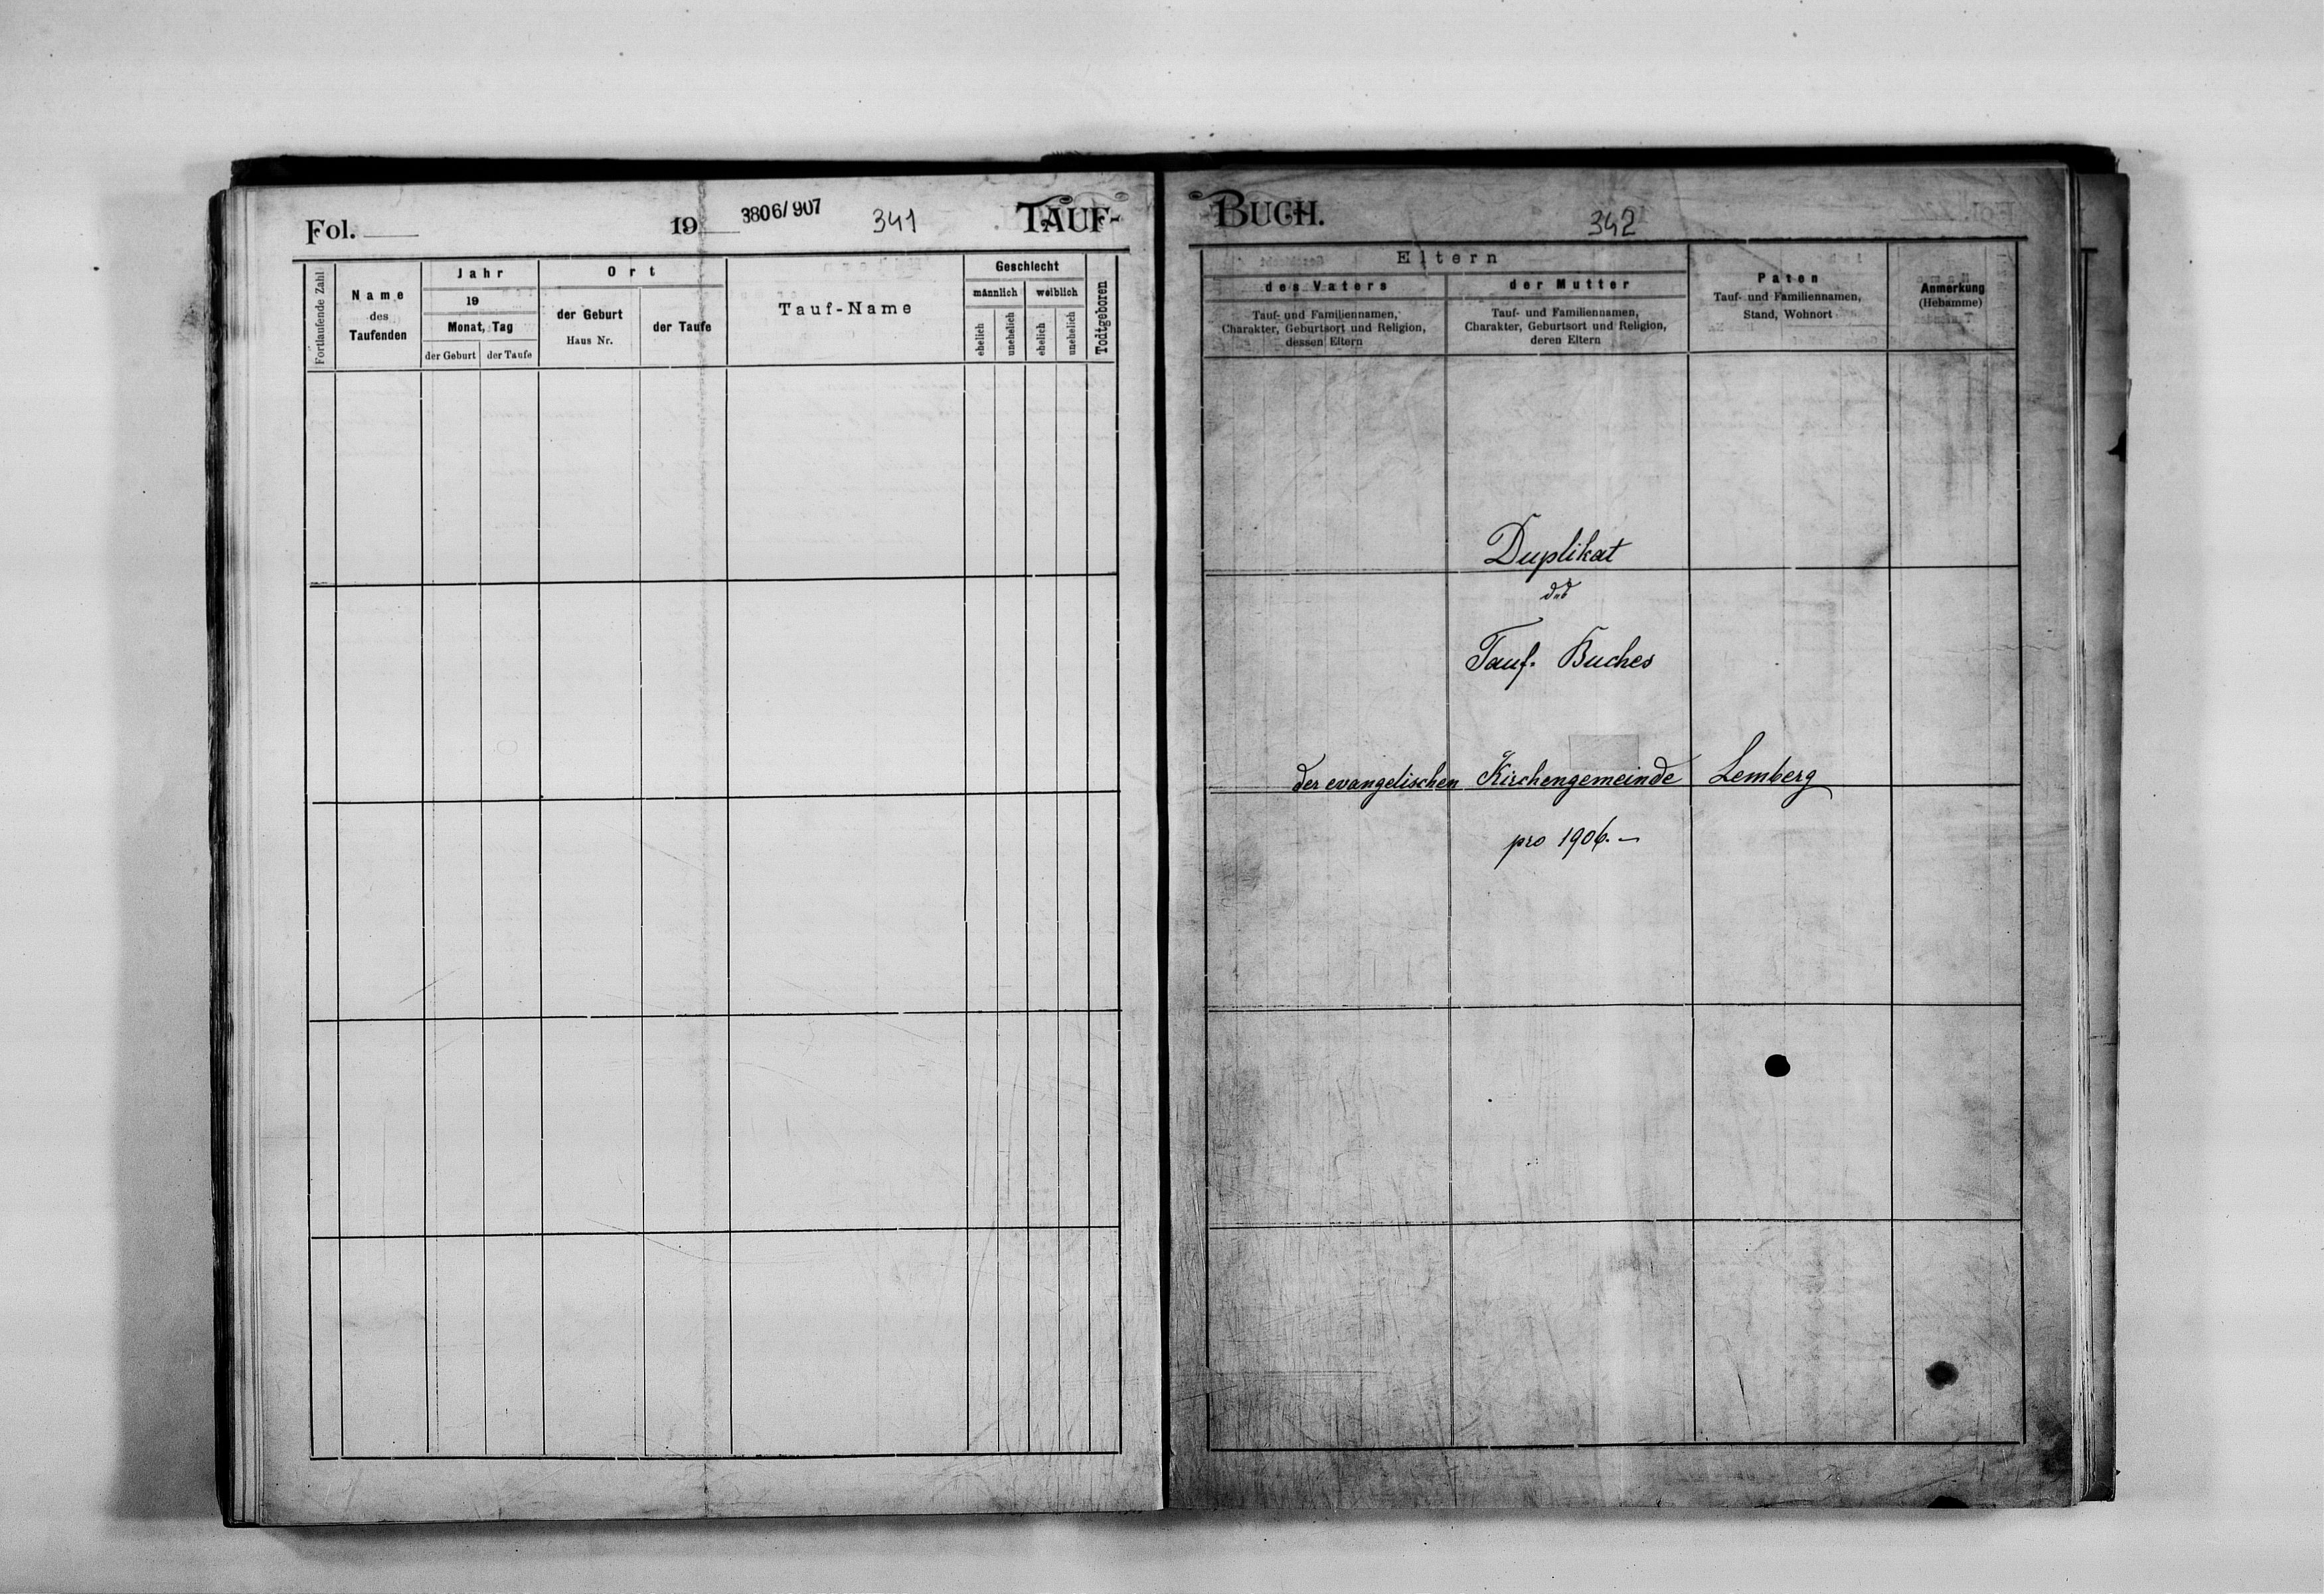 Fol. 19 3806/907 341 TAUF-
Fortlaufende Zahl
Name
des
Taufenden
Jahr
19
Monat, Tag
der Geburt
der Taufe
Ort
der Geburt
Haus Nr.
der Taufe
Tauf-Name
Geschlecht
männlich
weiblich
ehelich
unehelich
ehelich
unehelich
Todtgeboren
BUCH. 342
Eltern
des Vaters
Tauf- und Familiennamen,
Charakter, Geburtsort und Religion,
dessen Eltern
der Mutter
Tauf- und Familiennamen,
Charakter, Geburtsort und Religion,
deren Eltern
Paten
Tauf- und Familiennamen,
Stand, Wohnort
Anmerkung
(Hebamme)
Duplikat
des
Tauf- Buches
der evangelischen Kirchengemeinde Lemberg
pro 1906.-